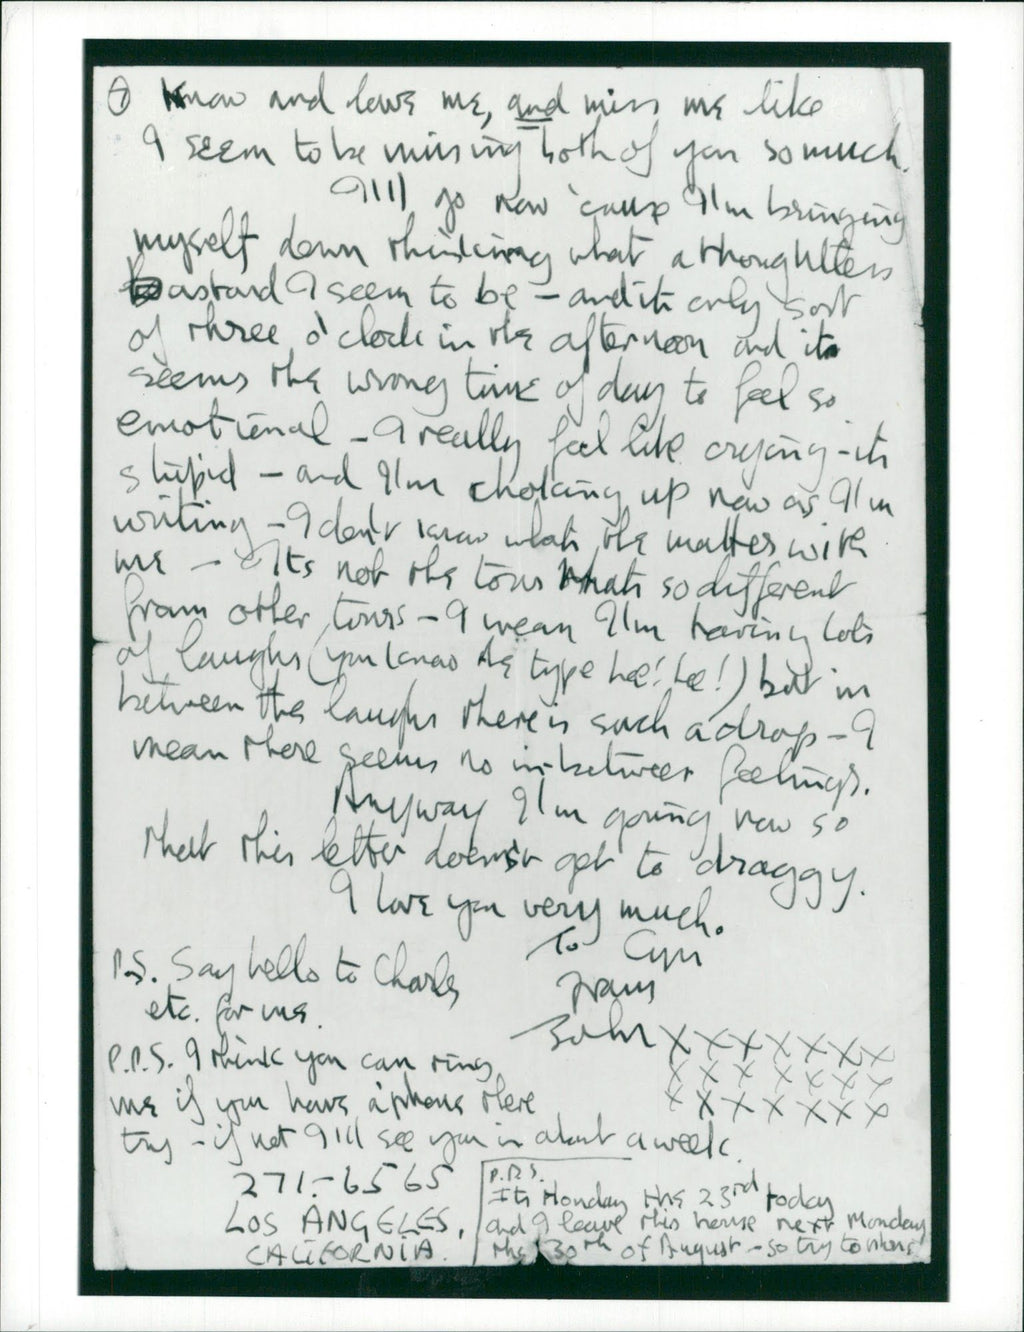 ⑦ Know and love me, and miss me like
I seem to be missing both of you so much.
I'll go now 'cause I'm bringing
myself down thinking what a thoughtless
bastard I seem to be – and its only sort
of three o'clock in the afternoon and it
seems the wrong time of day to feel so
emotional – I really feel like crying – its
stupid – and I'm choking up now as I'm
writing – I don't know whats the matter with
me – Its not the tour thats so different
from other tours – I mean I'm having lots
of laughs (you know the type hee! hee!) but in
between the laughs there is such a drop – I
mean there seems no in-between feelings.
Anyway I'm going now so
that this letter doesn't get to draggy.
I love you very much.
To Cyn
From
John XXXXXXX
XXXXXXX
XXXXXXX
P.S. Say hello to Charles
etc. for me.
P.P.S. I think you can ring
me if you have a phone there
try – if not I'll see you in about a week.
271-6565
LOS ANGELES,
CALIFORNIA.
P.P.S.
Its Monday the 23rd today
and I leave this house next Monday
the 30th of August – so try to